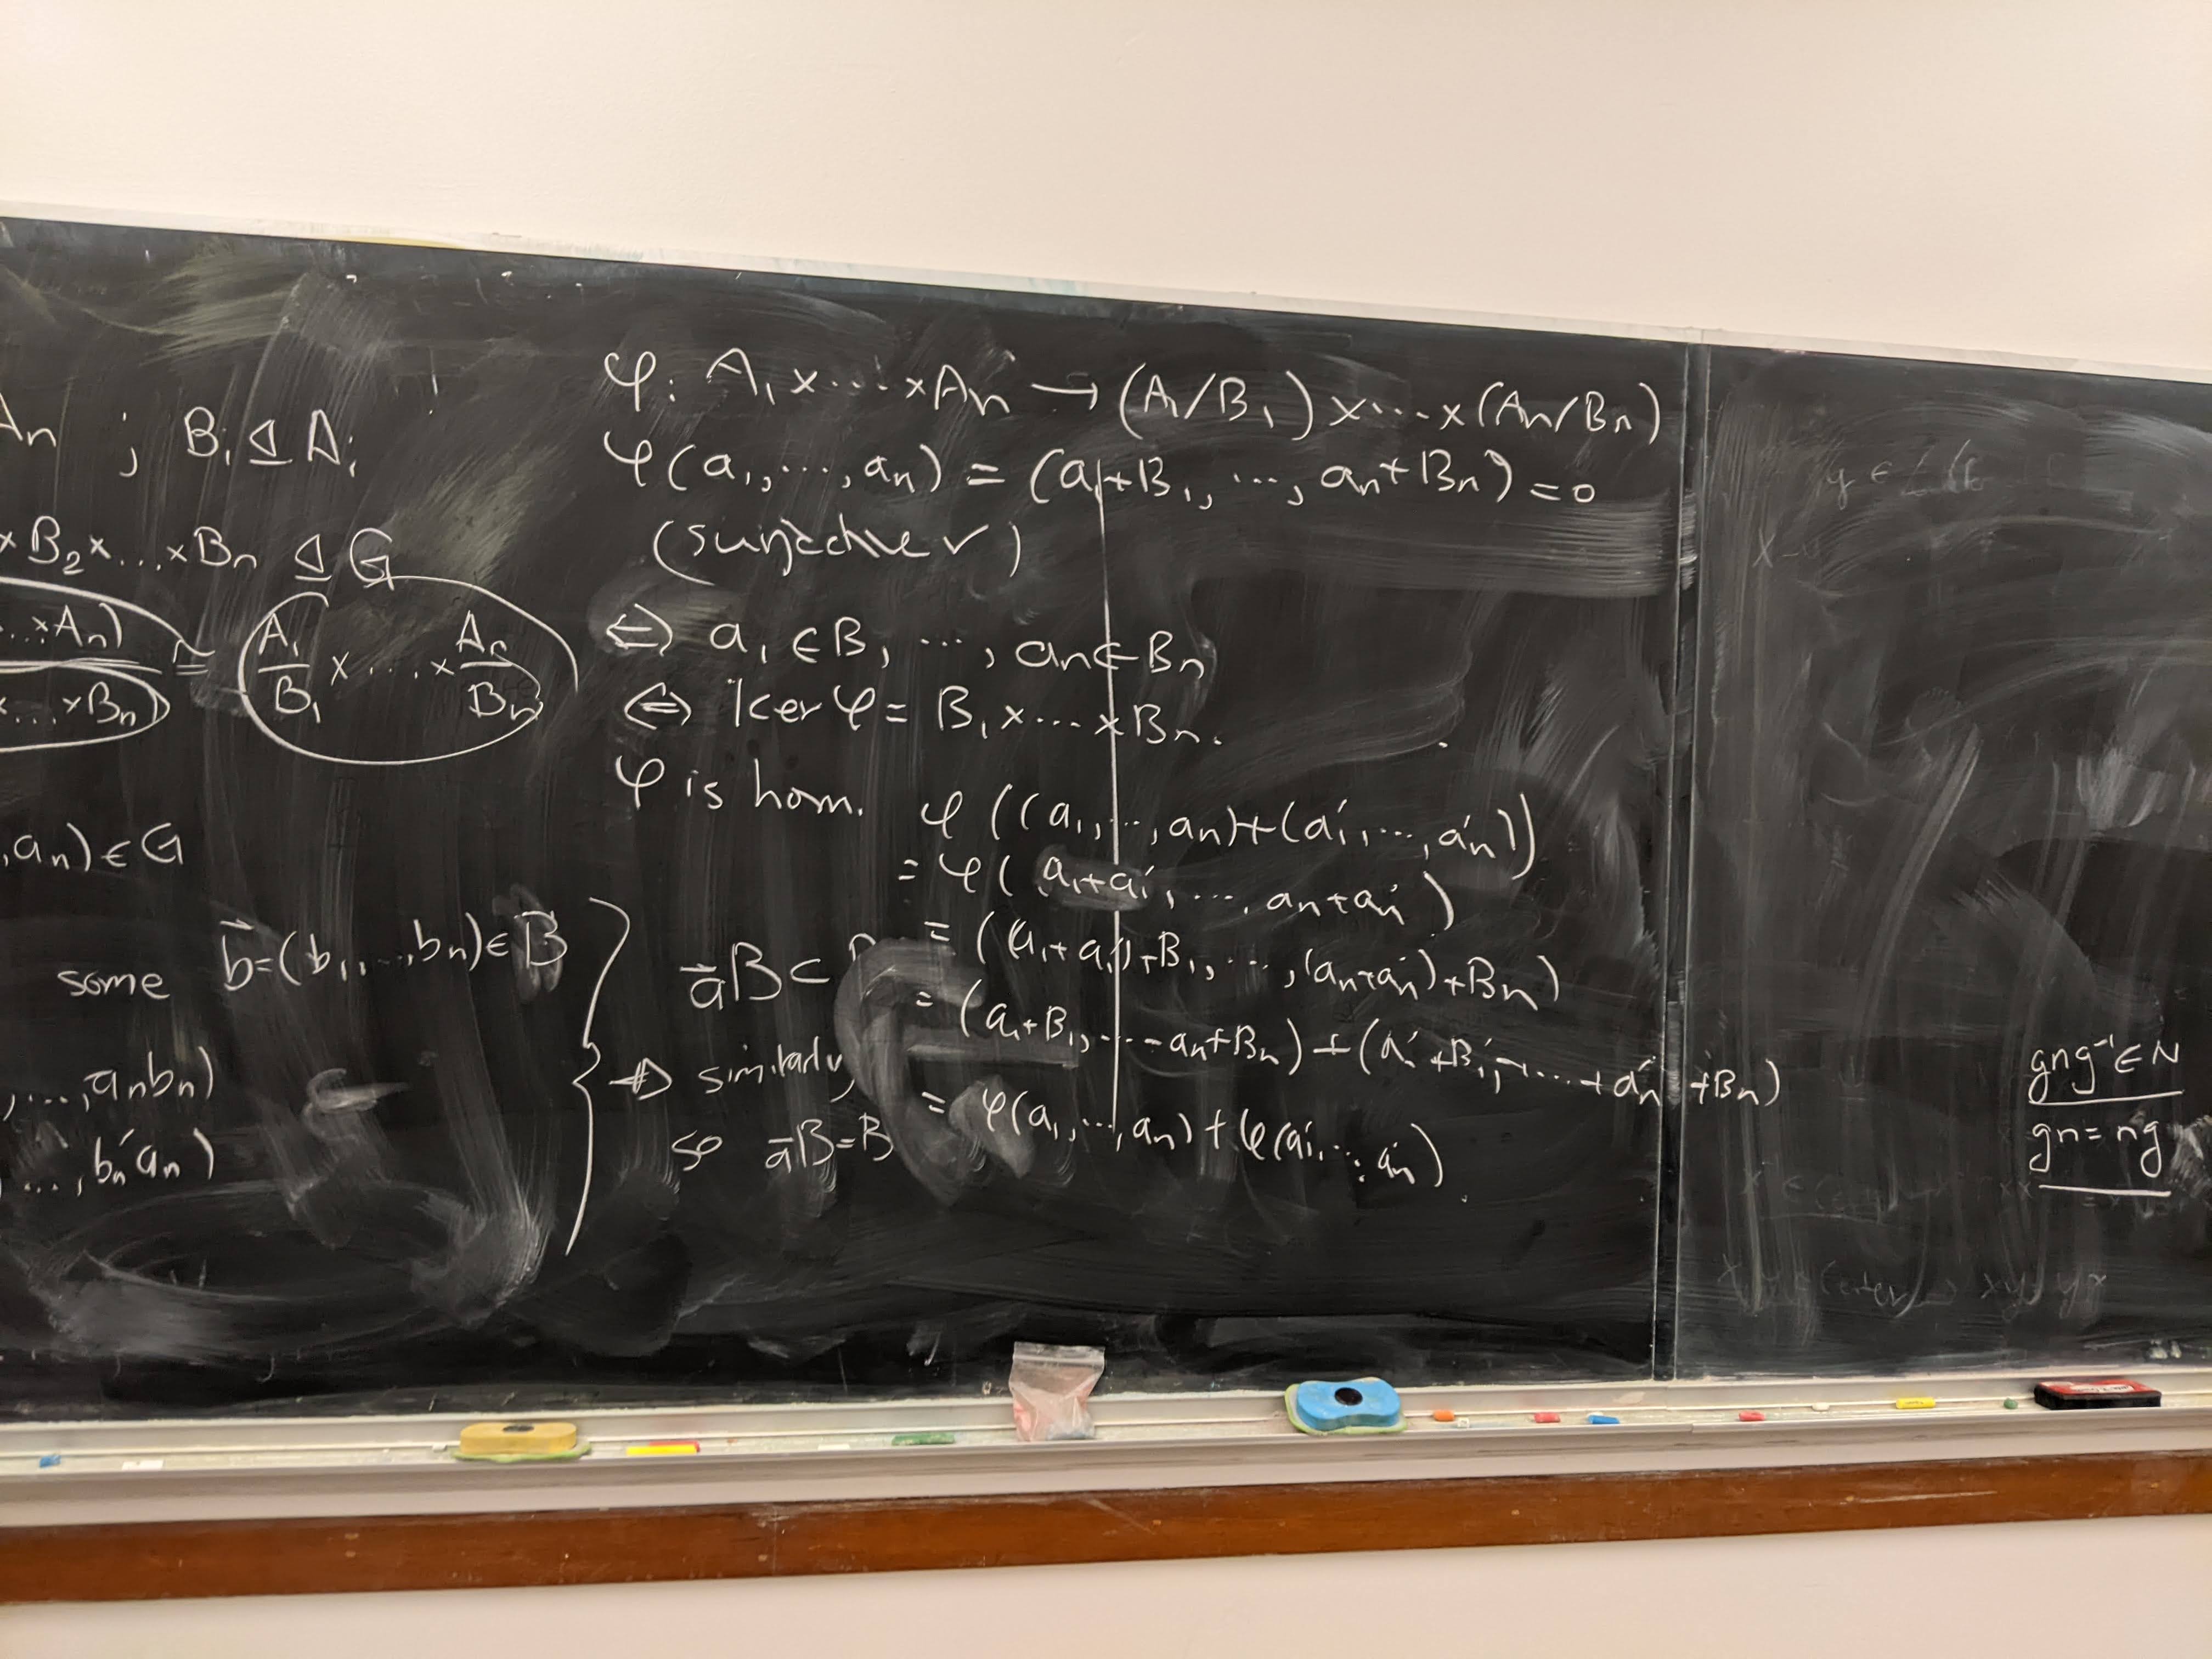 An ; Bᵢ ⊴ Aᵢ
×B₂×...×Bn ⊴ G
...×An) / ...×Bn) ≅ A₁/B₁ ×....× An/Bn
,an) ∈ G
some b⃗=(b₁,...,bn)∈B
,...,anbn)
...,bn'an)
āB⊂
⇒ similarly
so āB=B
φ: A₁×....×An → (A₁/B₁)×...×(An/Bn)
φ(a₁,...,an) = (a₁+B₁, ..., an+Bn) = 0
(surjective ✓)
⇔ a₁∈B₁ ..., an∈Bn
⇔ ker φ = B₁×...×Bn.
φ is hom. φ((a₁,...,an)+(a₁',...,an'))
= φ(a₁+a₁',...,an+an')
= ((a₁+a₁')+B₁,...,(an+an')+Bn)
= (a₁+B₁,...-an+Bn)+(a₁'+B₁,...+an'+Bn)
= φ(a₁,...,an)+φ(a₁',...,an').
gng⁻¹∈N
gn=ng